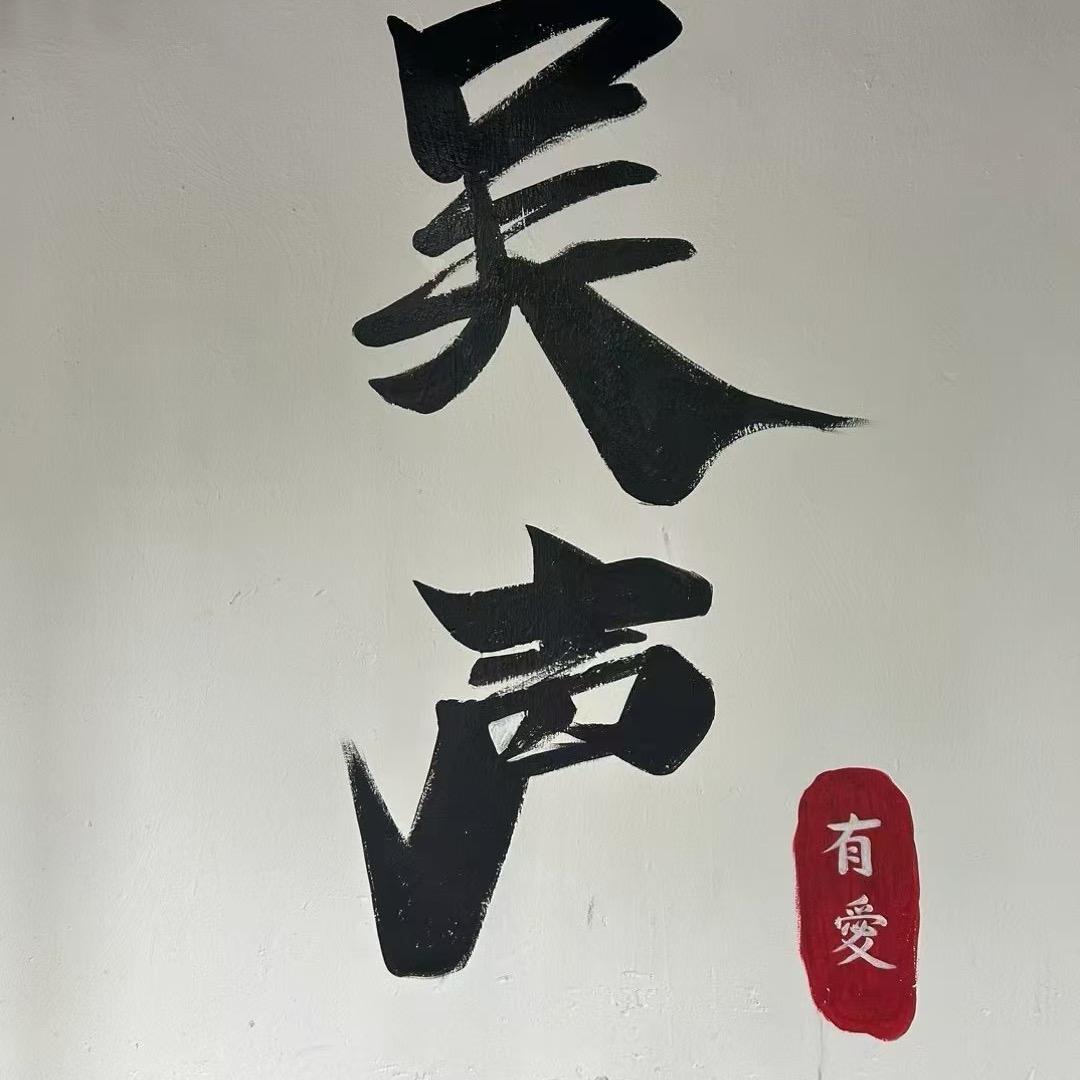 吴声
有愛